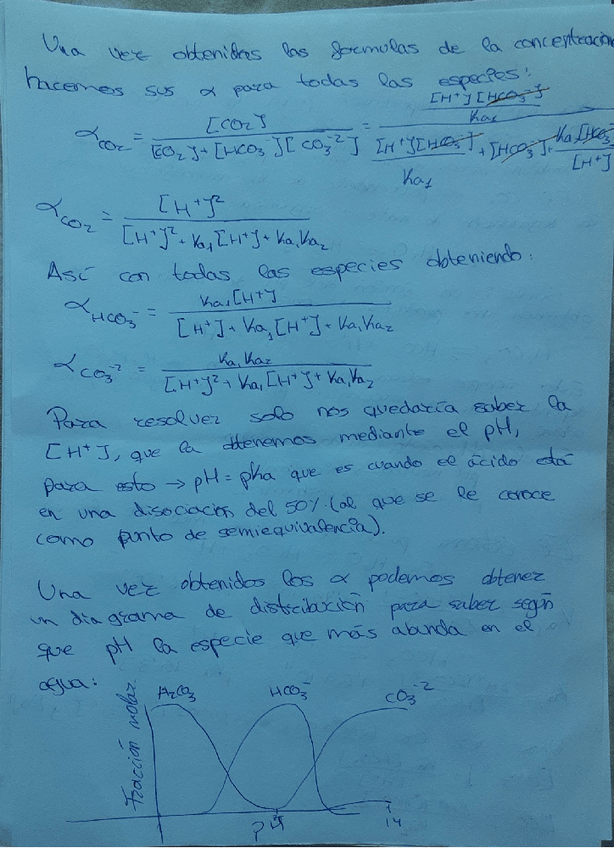 Una vez obtenidas las formulas de la concentración
hacemos sus α para todas las especies:
α_CO2 = [CO2] / [CO2] + [HCO3^-] [CO3^-2] = [H+][HCO3^-] / Ka1 / [H+][HCO3^-] / Ka1 + [HCO3^-] + Ka2[HCO3^-] / [H+]
α_CO2 = [H+]^2 / [H+]^2 + Ka1[H+] + Ka1Ka2
Así con todas las especies obteniendo:
α_HCO3^- = Ka1[H+] / [H+] + Ka1[H+] + Ka1Ka2
α_CO3^-2 = Ka1Ka2 / [H+]^2 + Ka1[H+] + Ka1Ka2
Para resolver solo nos quedaría saber la
[H+], que la obtenemos mediante el pH,
para esto → pH = pka que es cuando el ácido está
en una disociación del 50% (al que se le conoce
como punto de semiequivalencia).
Una vez obtenidos los α podemos obtener
un diagrama de distribución para saber según
que pH la especie que más abunda en el
agua:
H2CO3 HCO3^- CO3^-2
Fracción molar
pH 14